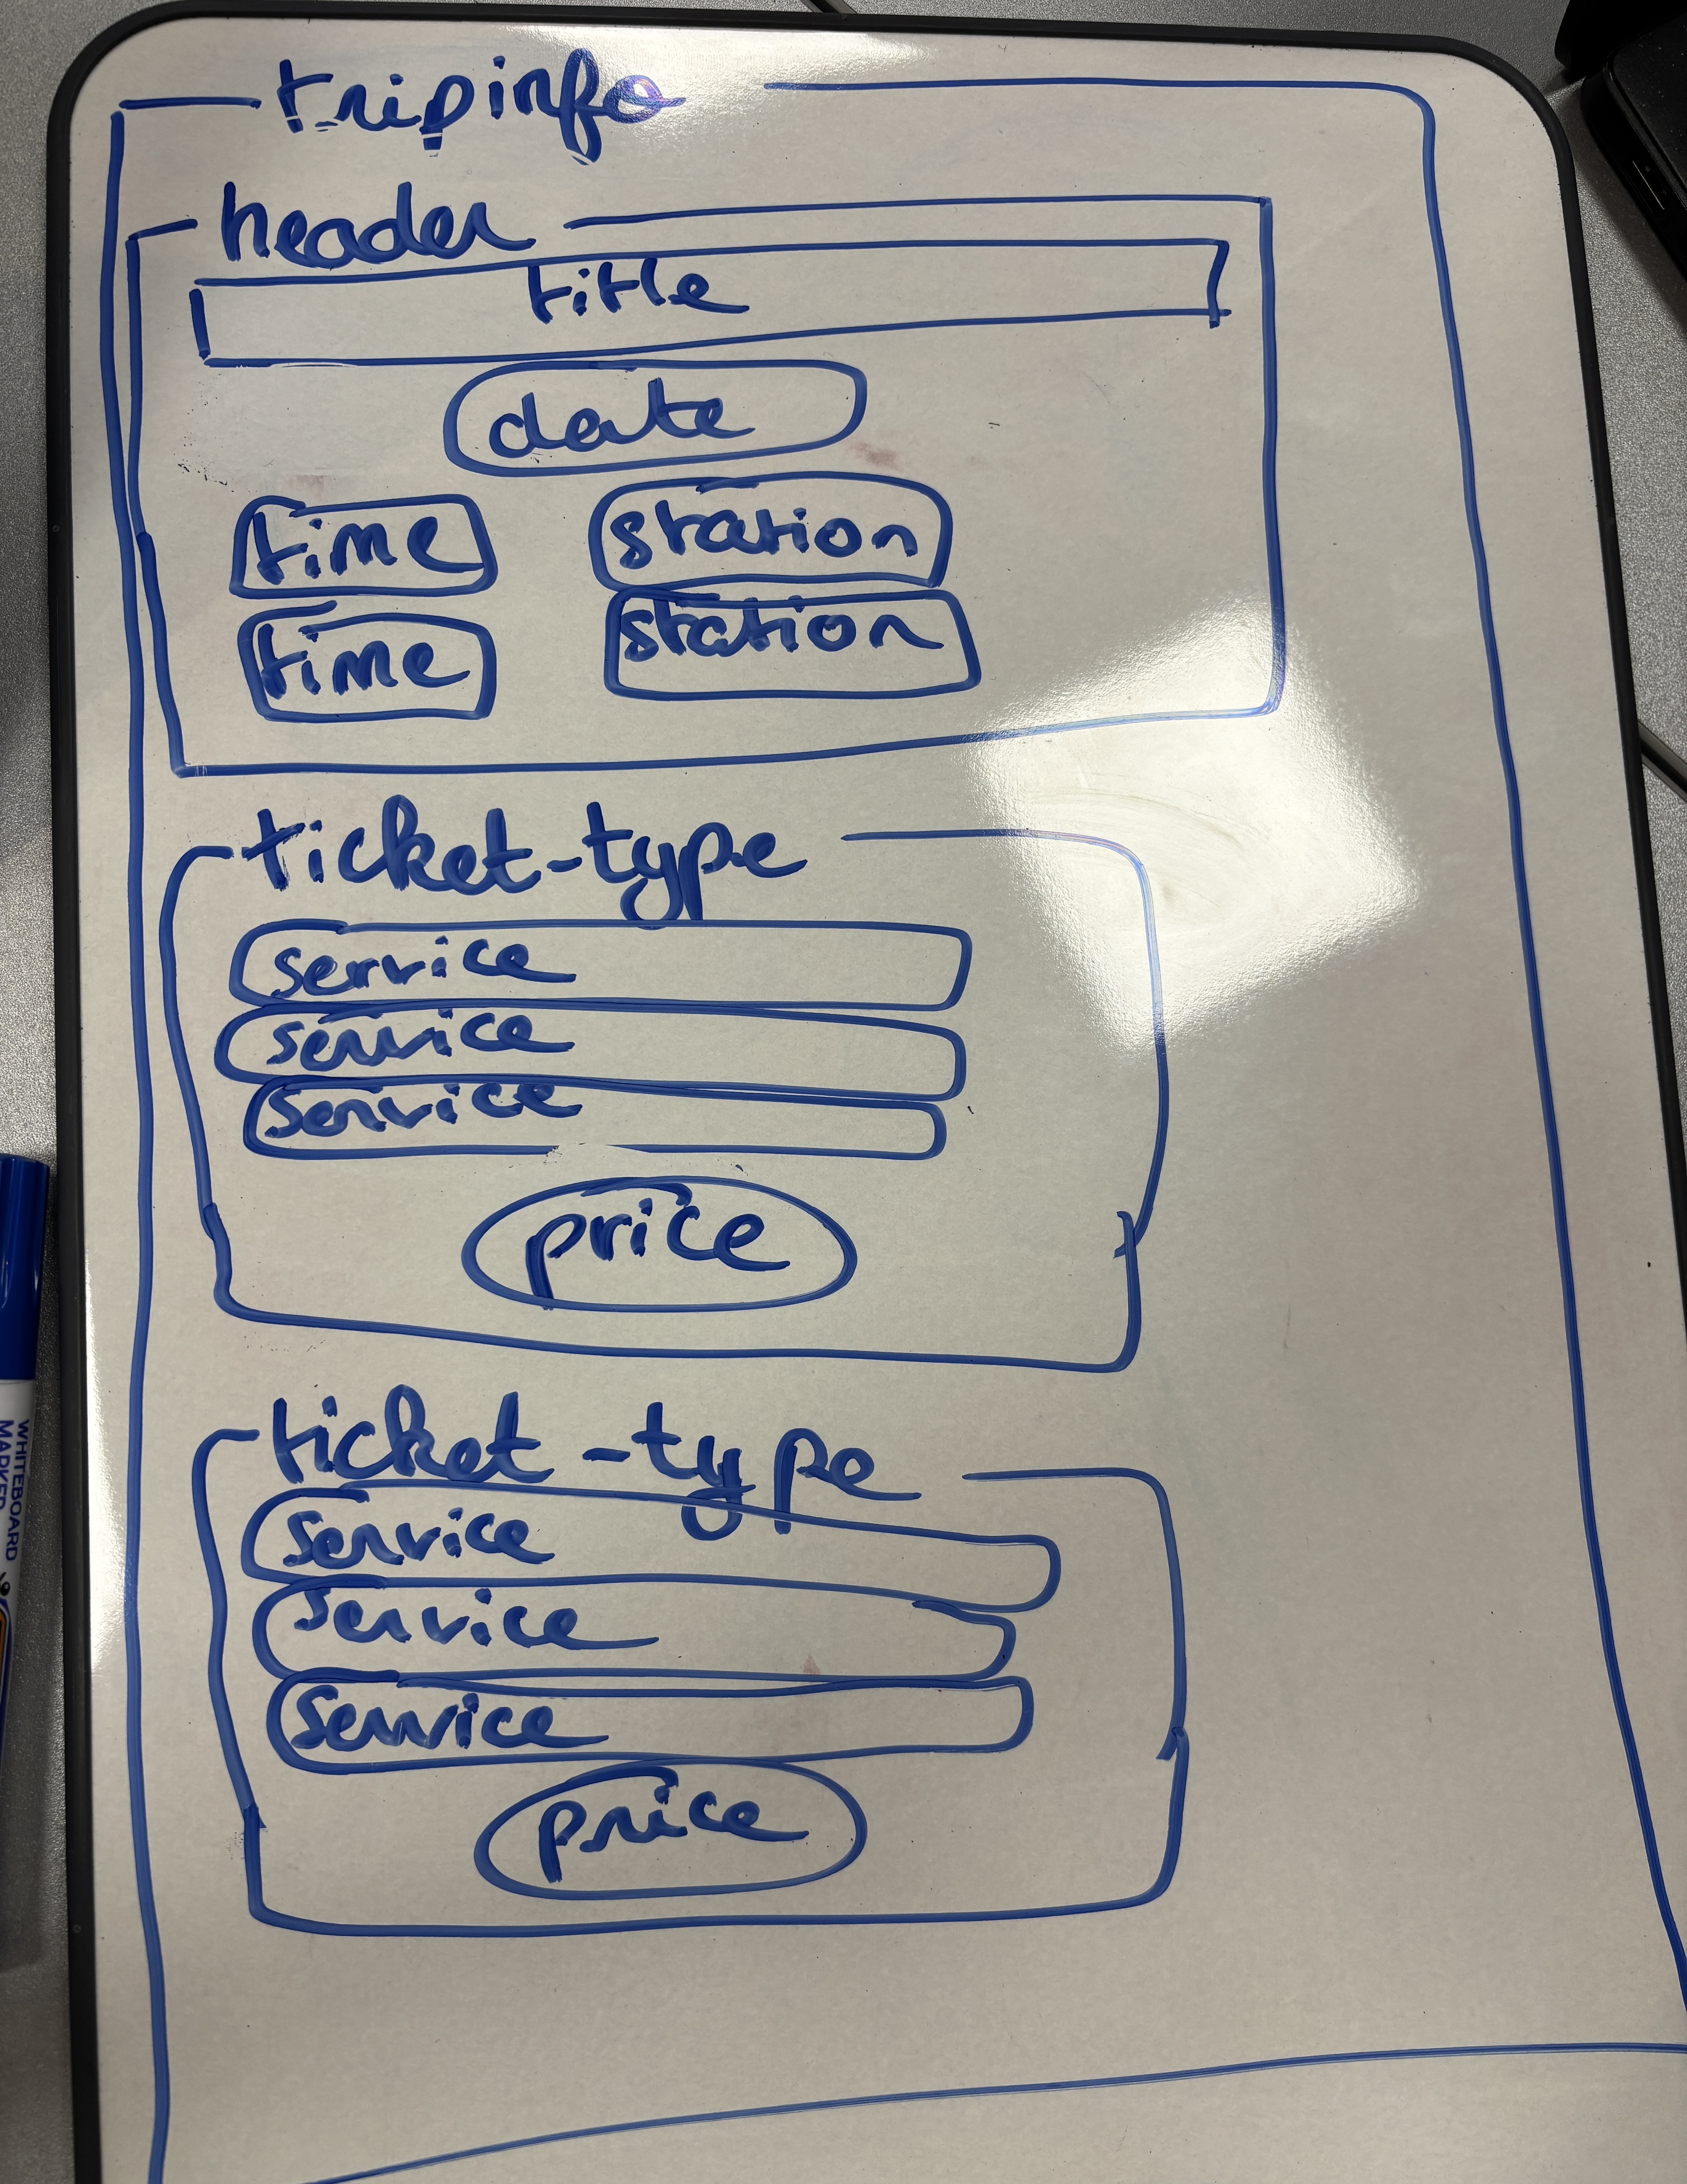 tripinfo
header
title
date
time station
time station
ticket-type
service
service
service
price
ticket-type
service
service
service
price
WHITEBOARD
MARKER